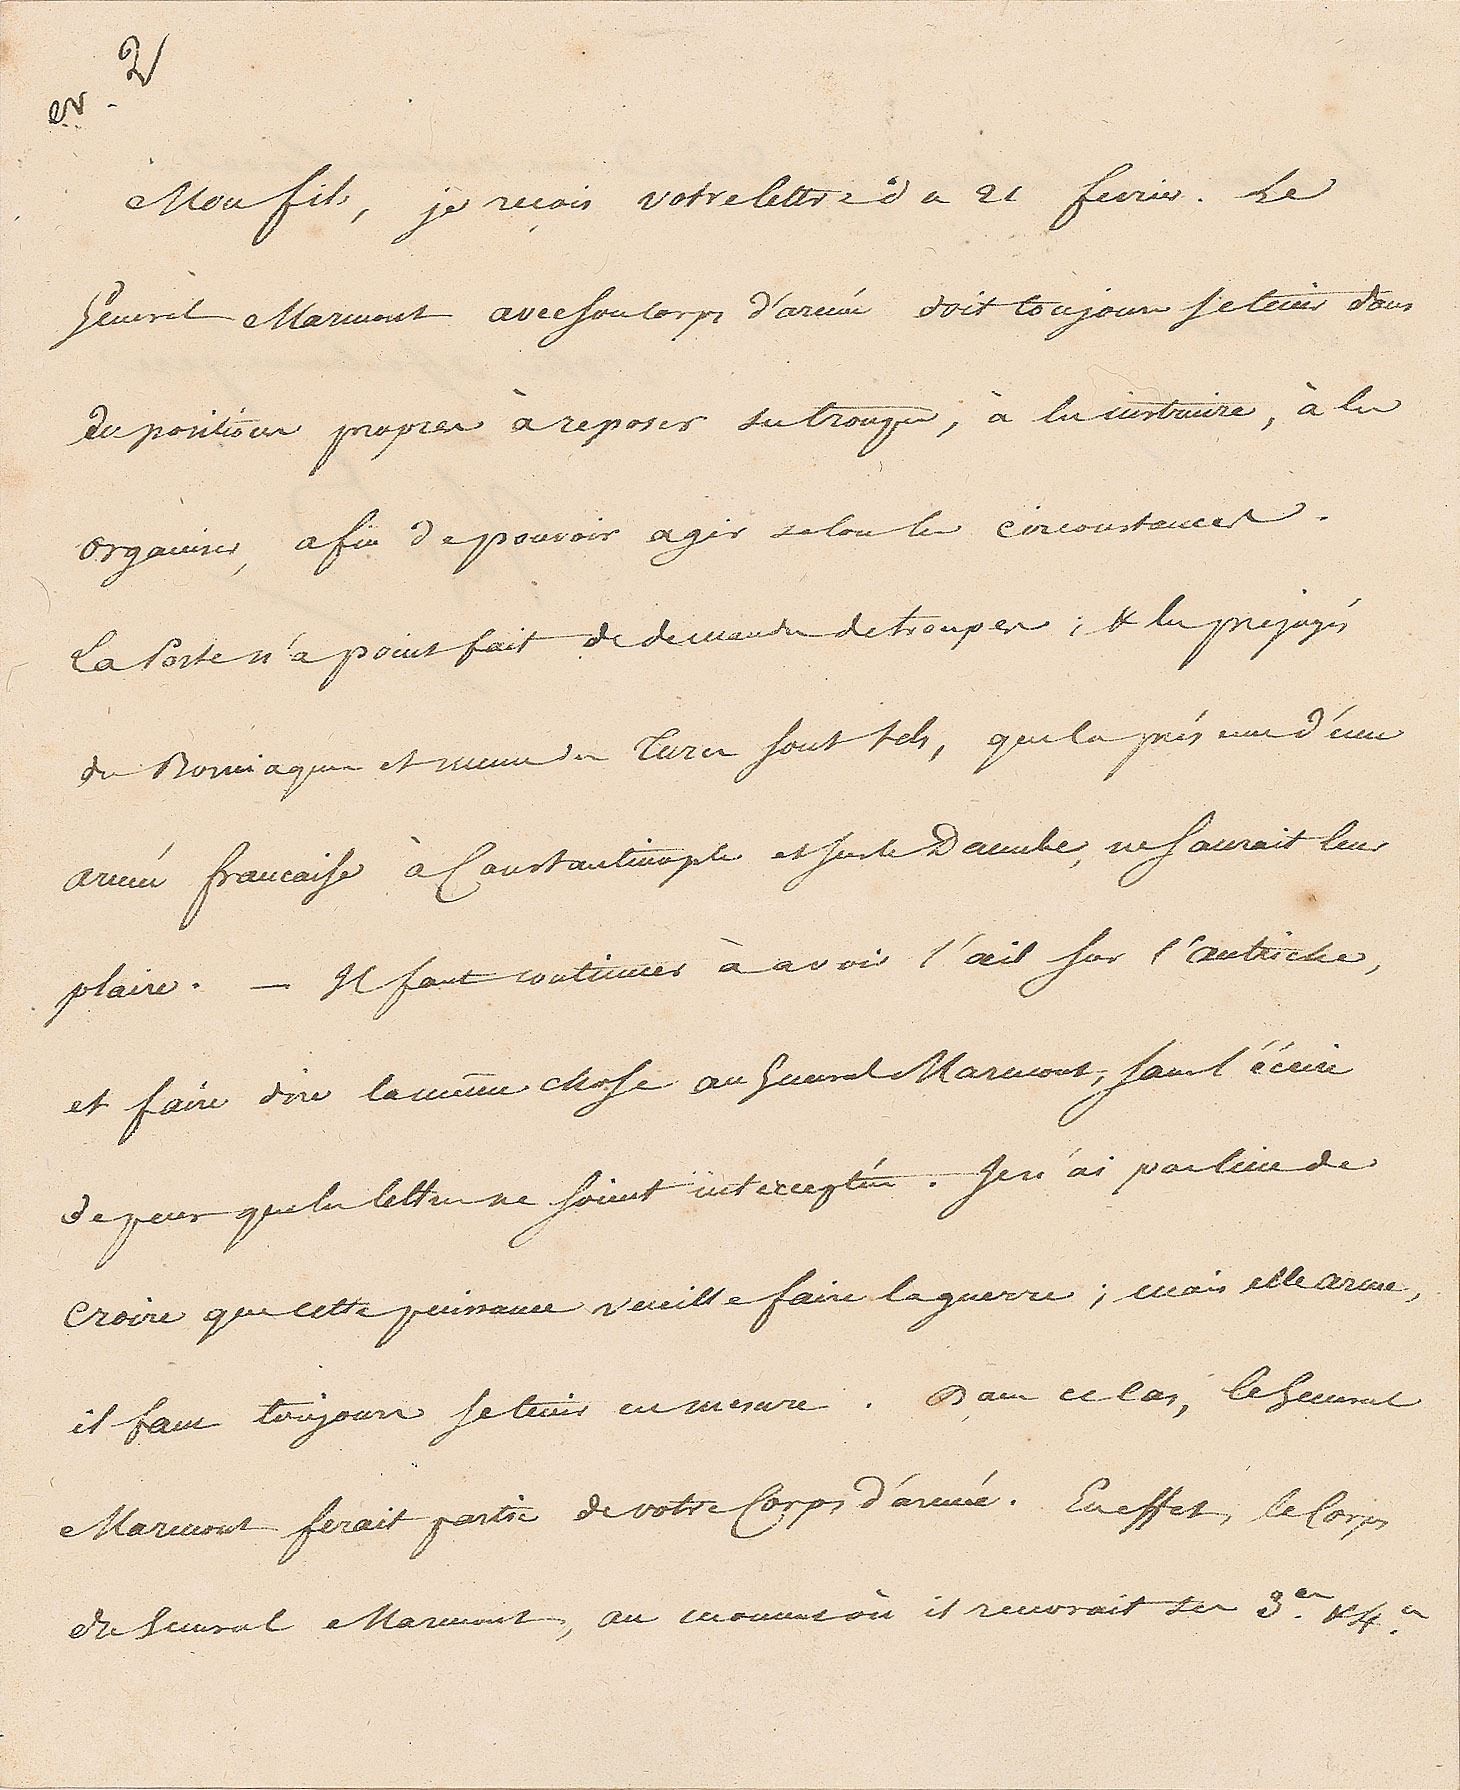 2
er.
Mon fils, je reçois votre lettre du 21 fevrier. Le
Général Marmont avec son Corps d'armée doit toujours se tenir dans
des positions propres à reposer ses troupes, à les instruire, à les
organiser, afin de pouvoir agir selon les circonstances.
La Porte n'a point fait de demandes de troupes ; & les préjugés
des Bosniaques et même des Turcs sont tels, que la présence d'une
armée francaise à Constantinople et sur le Danube, ne saurait leur
plaire. — Il faut continuer à avoir l'œil sur l'autriche,
et faire dire la même chose au Général Marmont, sans l'écrire
de peur que les lettres ne soient interceptées. Je n'ai pas lieu de
croire que cette puissance veuille faire la guerre ; mais elle arme,
il faut toujours se tenir en mesure. Dans ce cas, le Général
Marmont ferait partie de votre Corps d'armée. En effet, le Corps
du Général Marmont, au moment où il recevrait ses 3.es & 4.es